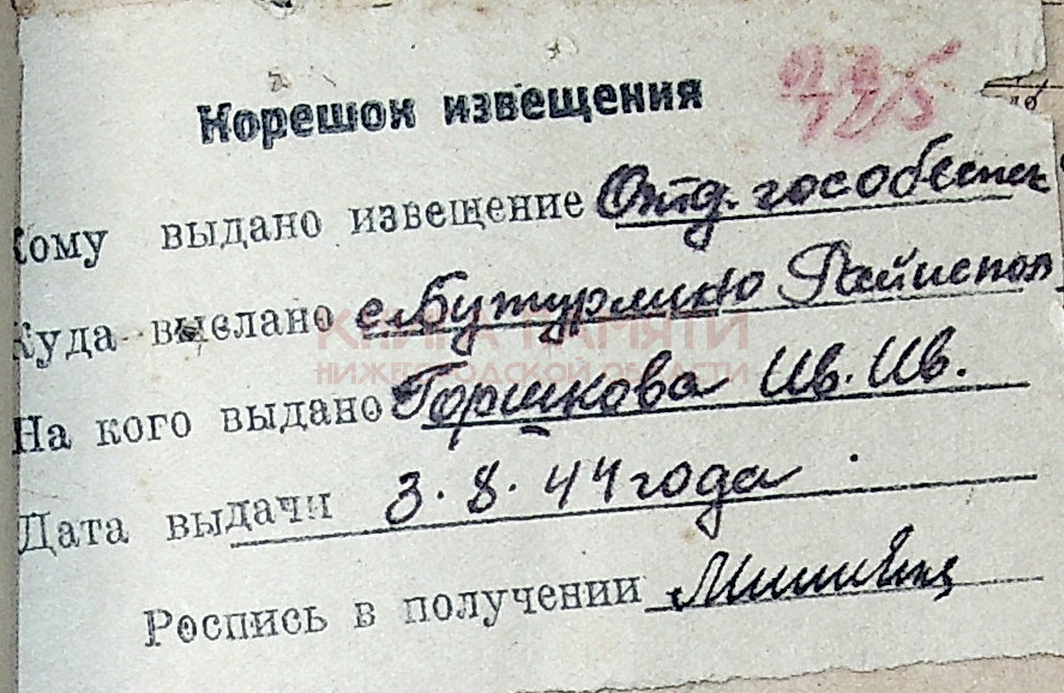 Корешок извещения
Кому выдано извещение Отд. гособеспеч
Куда выслано с. Бутурлино Райиспол
На кого выдано Горшкова Ив. Ив.
КНИГА ПАМЯТИ
НИЖЕГОРОДСКОЙ ОБЛАСТИ
Дата выдачи 3.8.44 года
Роспись в получении